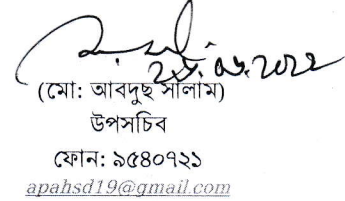 (মো: আবদুছ সালাম)
উপসচিব
ফোন: ৯৫৪০৭২১
apahsd19@gmail.com